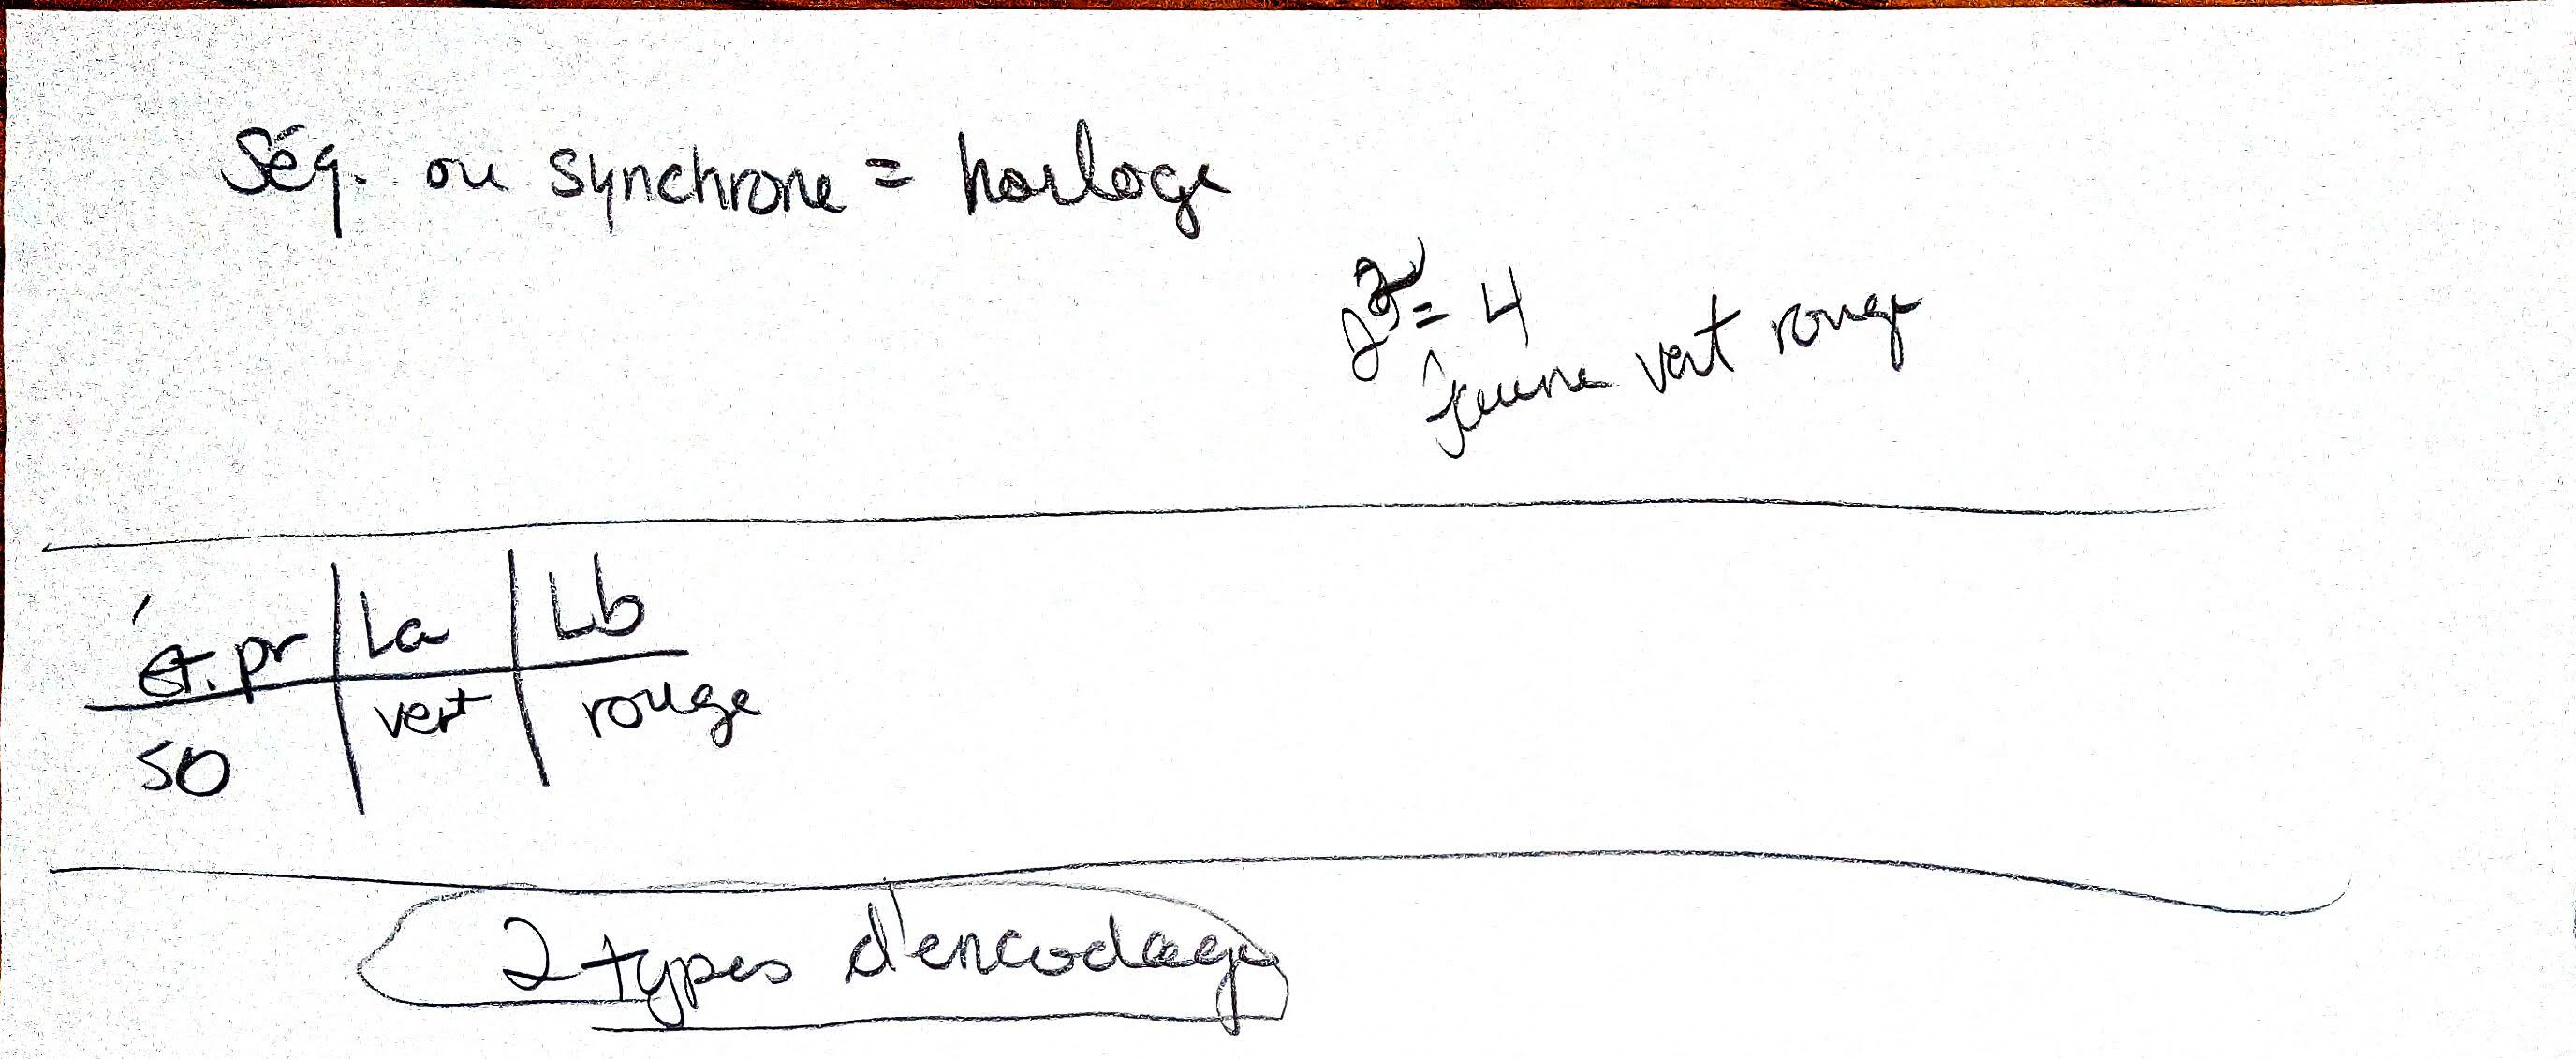 Séq. ou synchrone = horloge
2² = 4
jaune vert rouge
ét. pr | La | Lb
S0 | vert | rouge
2 types d'encodage